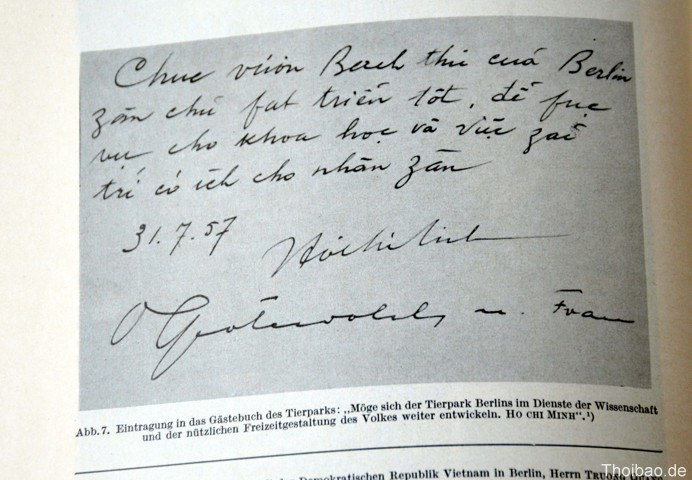 Chuc vươn Bách thú cuả Berlin
zân chủ fát triển tốt, để fục
vụ cho khoa học và việc zải
trí có ích cho nhân zân
31.7.57
Hồ Chí Minh
O Grotewohl u. Frau
Abb. 7. Eintragung in das Gästebuch des Tierparks: „Möge sich der Tierpark Berlins im Dienste der Wissenschaft
und der nützlichen Freizeitgestaltung des Volkes weiter entwickeln. HO CHI MINH“.¹)
Demokratischen Republik Vietnam in Berlin, Herrn TRUONG
Thoibao.de